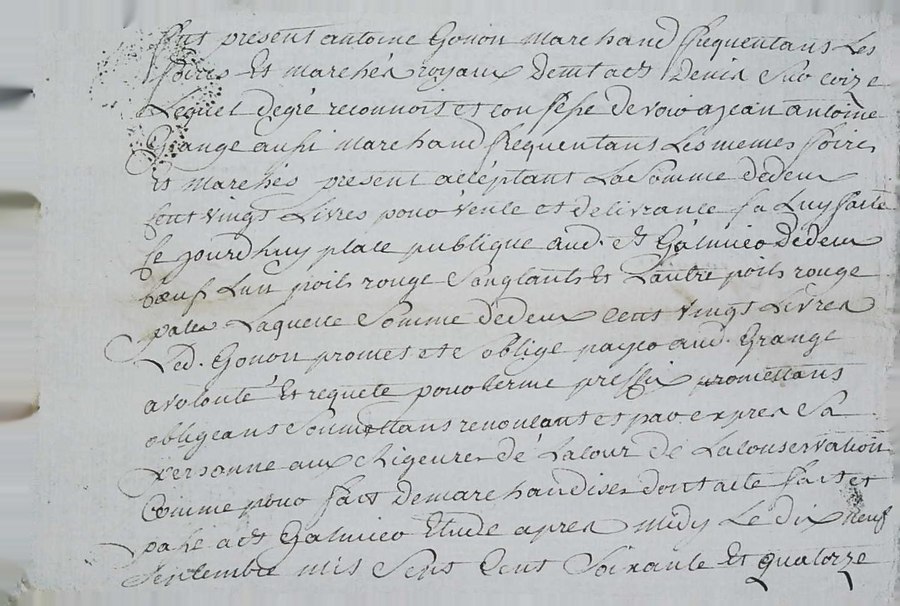 fut present antoine Gonon marchand frequentans Les
foires Et marchés royaux Demt a st Denis Sur coize
Lequel degré reconnoit et confesse devoir a jean antoine
Grange aussi marchand frequentans Les memes foires
Et marchés present acceptant La Somme de deux
cent vingt Livres pour vente et delivrance a Luy faite
ce jourdhuy place publique aud. st Galmier de deux
bœufs Lun poils rouge Sanglants Et Lautre poils rouge
pales Laquelle Somme de deux cent vingt Livres
Led. Gonon promet et s oblige payer aud. Grange
a volonté Et requete pour terme prefix promettans
obligeans Soumettans renonçant et par expres Sa
personne aux rigeures de La Cour de La Conservation
Comme pour fait de marchandises dont acte fait et
passé a st Galmier Etude apres midy Le dix neuf
Septembre mil Sept Cent Soixante Et quatorze